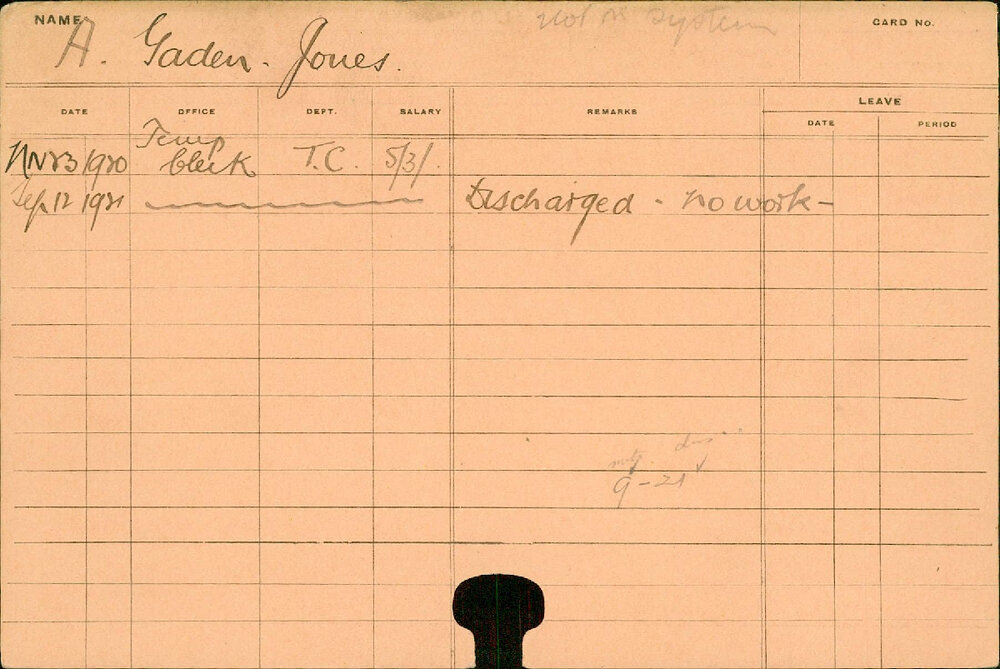 NAME
A. Gaden-Jones.
Not in system
CARD No.
DATE OFFICE DEPT. SALARY REMARKS LEAVE
DATE PERIOD
Nov 23 1920 Temp Clerk T.C. 5/3/.
Sep. 12 1921 Discharged - no work -
9-21